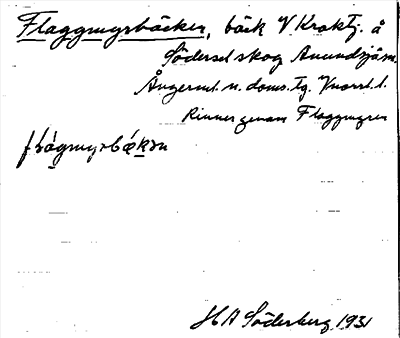 Flaggmyrbäcken, bäck V Kroktj. å
Södersel skog Anundsjö sn.
Ångerml. n. doms. tg. Vnorrl. l.
Rinner genom Flaggmyren
H A Söderberg 1931